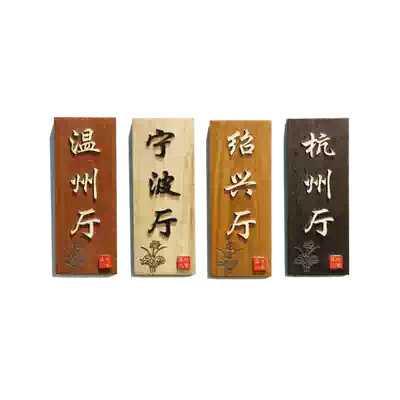 温州厅
宁波厅
绍兴厅
杭州厅